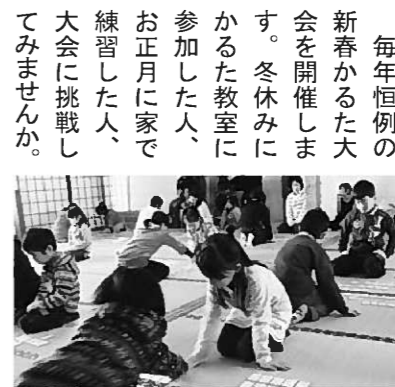 毎年恒例の
新春かるた大
会を開催しま
す。冬休みに
かるた教室に
参加した人、
お正月に家で
練習した人、
大会に挑戦し
てみませんか。